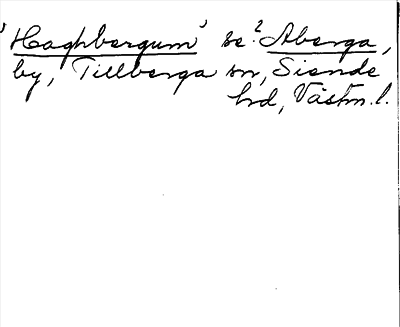 'Haghbergum' se ? Aberga,
by, Tillberga sn, Siende
hd, Västm. l.